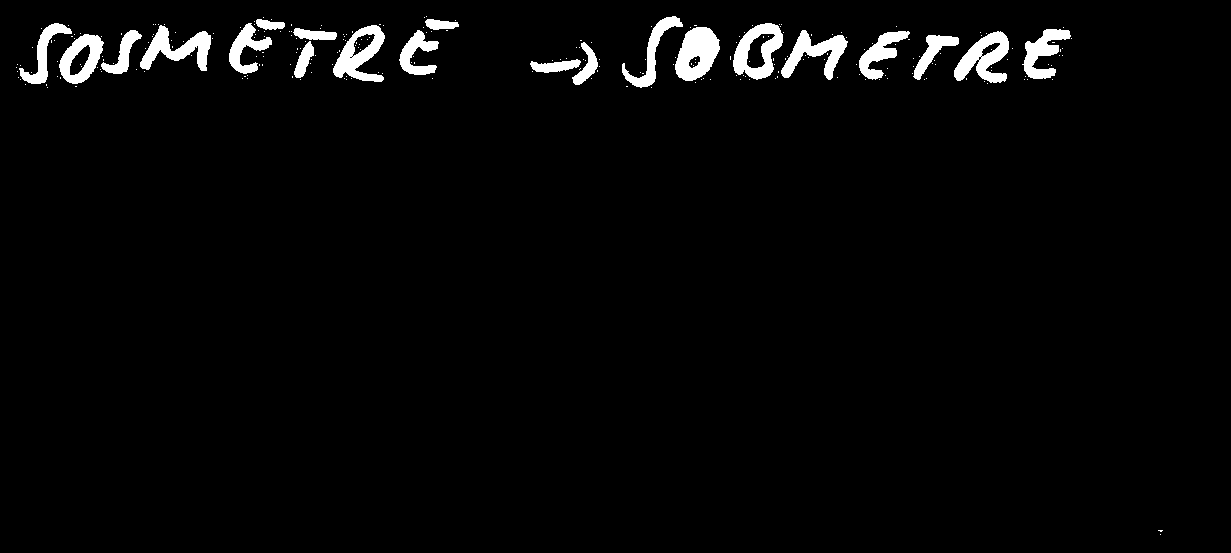 SOSMETRE → SOBMETRE